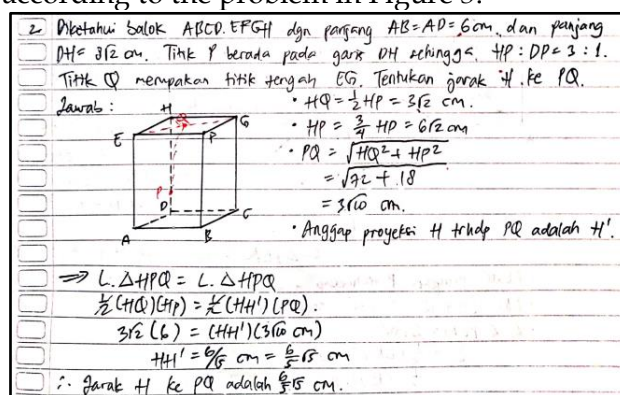 according to the problem in Figure 3.
2. Diketahui balok ABCD.EFGH dgn panjang AB=AD=6cm, dan panjang
DH= 3√2 cm. Titik P berada pada garis DH sehingga HP : DP = 3 : 1.
Titik Q merupakan titik tengah EG. Tentukan jarak H ke PQ.
Jawab :
H
Q
E
G
P
P
D
C
A
B
• HQ = ½ HP = 3√2 cm.
• HP = ¾ HD = 6√2 cm
• PQ = √HQ² + HP²
= √72 + 18
= 3√10 cm.
• Anggap proyeksi H trhdp PQ adalah H'.
⇒ L. △HPQ = L. △HPQ
½ (HQ)(HP) = ½ (HH') (PQ).
3√2 (6) = (HH')(3√10 cm)
HH' = 6/√5 cm = 6/5 √5 cm
∴ Jarak H ke PQ adalah 6/5 √5 cm.